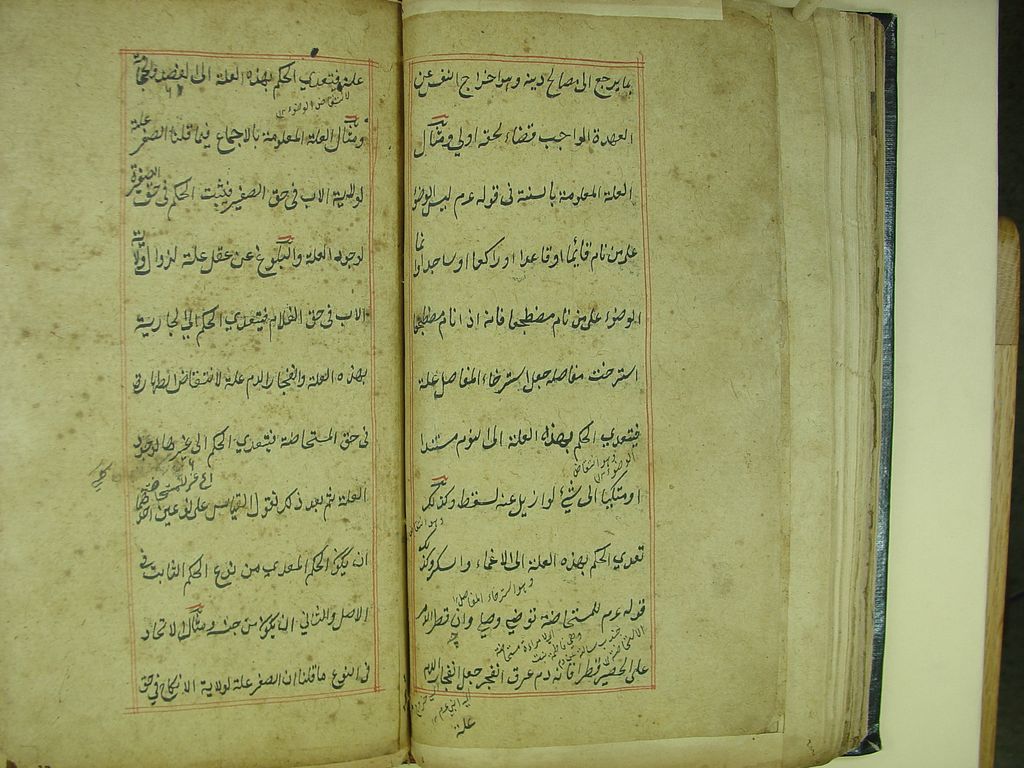 ما يرجع الى مصالح دينه وهو اخراج النفس عن
العهدة الواجب قضاء لحقه اولى ومثال
العلة المعلومة بالسنة فى قوله عم ليس الوضوء
على من نام قايما او قاعدا او راكعا او ساجدا انما
الوضوء على من نام مضطجعا فانه اذا نام مضطجعا
استرخت مفاصله جعل استرخاء المفاصل علة
فيتعدى الحكم بهذه العلة الى النوم مستندا
او متكيا الى شئ لو ازيل عنه لسقط وكذلك
تعدى الحكم بهذه العلة الى الاغماء والسكر وكذلك
قوله عم للمستحاضة توضئ وصلى وان قطر الدم
على الحصير قطرا فانه دم عرق انفجر جعل انفجار الدم
علة
علة فيتعدى الحكم بهذه العلة الى الفصد والحجامة
ومثال العلة المعلومة بالاجماع فيما قلنا الصغر علة
لولاية الاب فى حق الصغير فيثبت الحكم فى حق الصغيرة
لوجود العلة والبلوغ عن عقل علة لزوال ولاية
الاب فى حق الغلام فيتعدى الحكم الى الجارية
بهذه العلة وانفجار الدم علة لانتقاض الطهارة
فى حق المستحاضة فيتعدى الحكم الى غيرها لوجود
العلة ثم بعد ذلك نقول القياس على نوعين احدهما
ان يكون الحكم المعدى من نوع الحكم الثابت فى
الاصل والثانى ان يكون من جنسه ومثال الاتحاد
فى النوع ما قلنا ان الصغر علة لولاية الانكاح فى حق